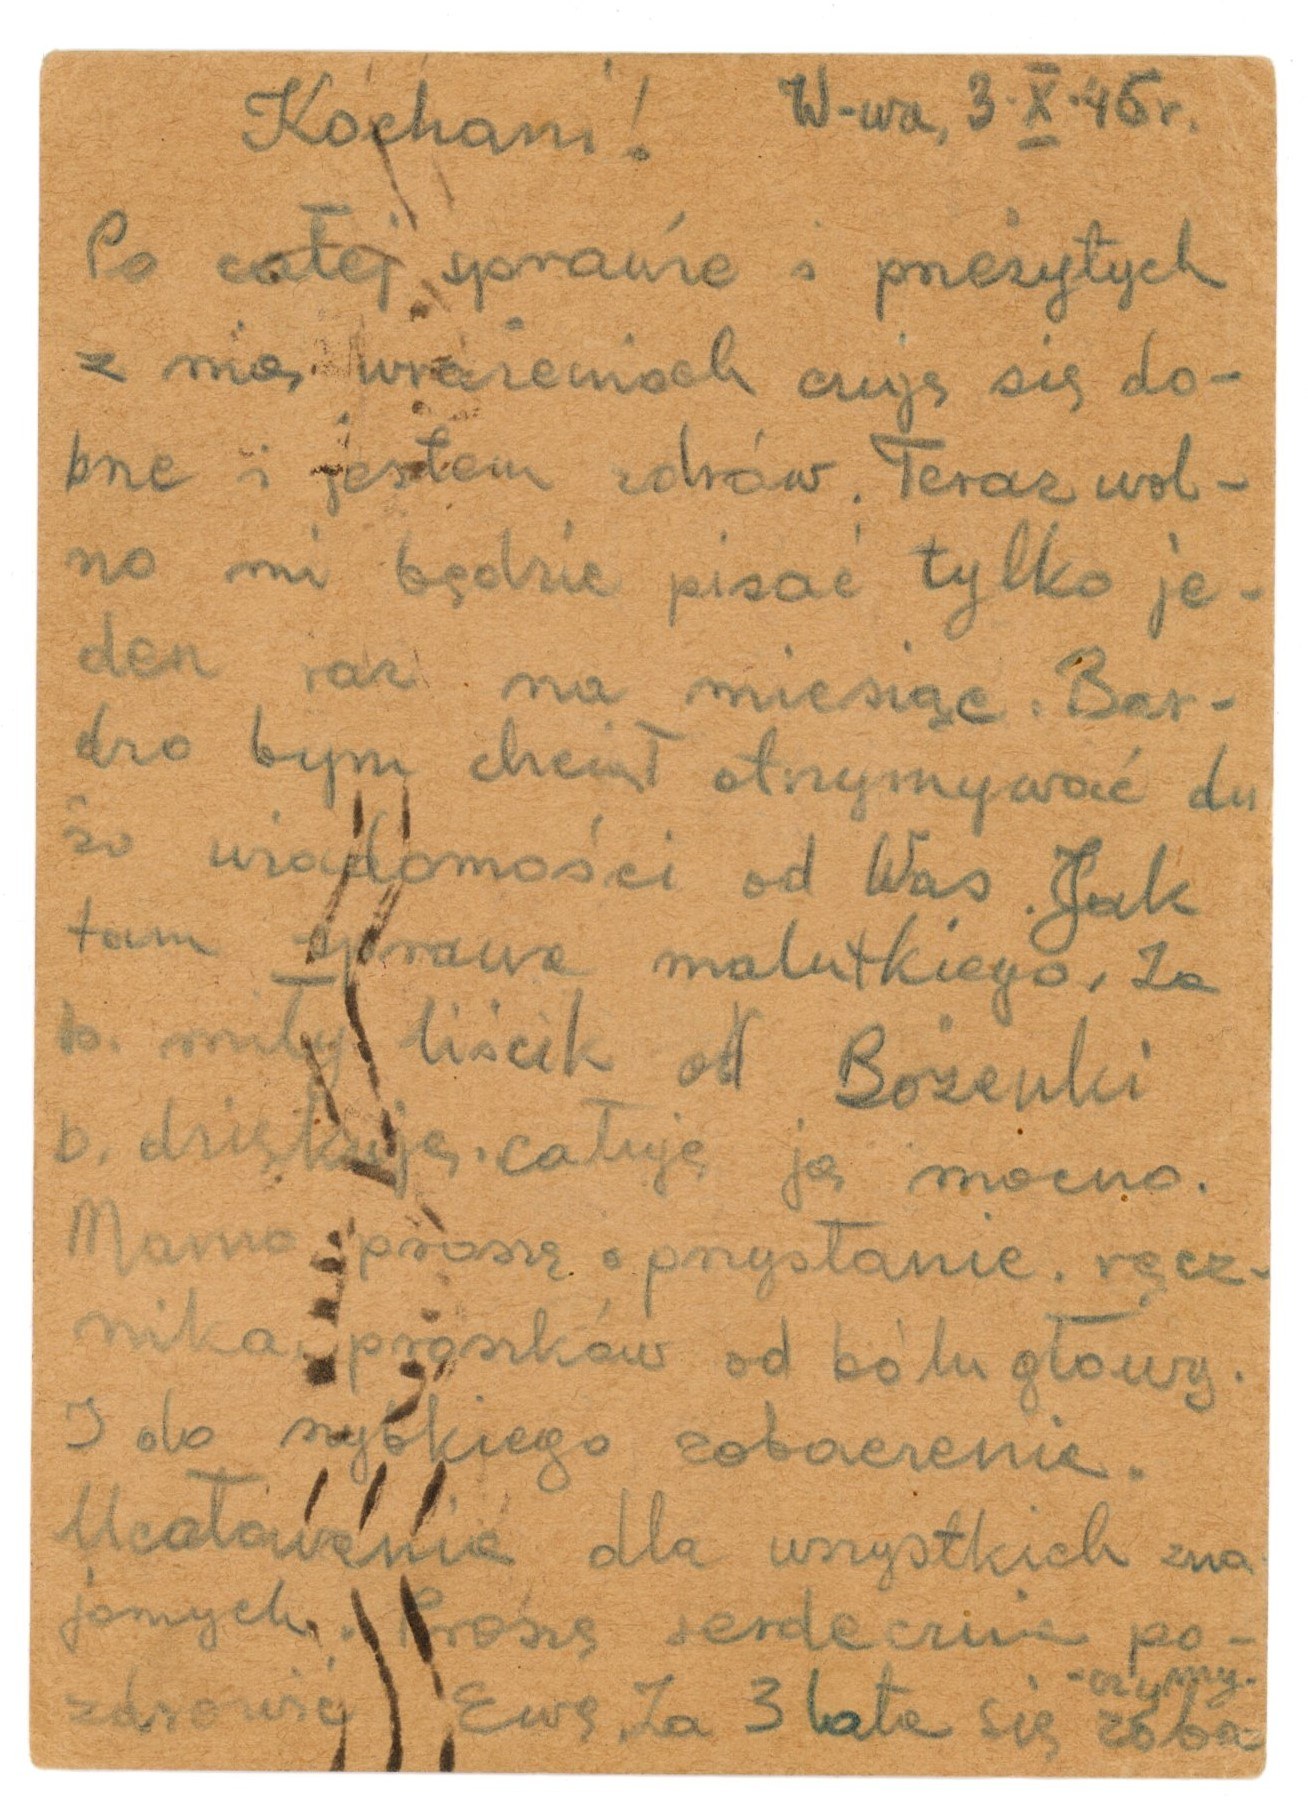 Kochani! W-wa, 3.X.46r.
Po całej sprawie i przeżytych
z nią wrażeniach czuję się do-
brze i jestem zdrów. Teraz wol-
no mi będzie pisać tylko je-
den raz na miesiąc. Bar-
dzo bym chciał otrzymywać du
żo wiadomości od Was. Jak
tam sprawa malutkiego. Za
b. miły liścik od Bożenki
b. dziękuję. całuję ją mocno.
Mamo proszę o przysłanie. ręcz-
nika, proszków od bólu głowy.
I do szybkiego zobaczenia.
Ucałowania dla wszystkich zna
jomych. Proszę serdecznie po-
zdrowić Ewę. Za 3 lata się zoba
-czymy.